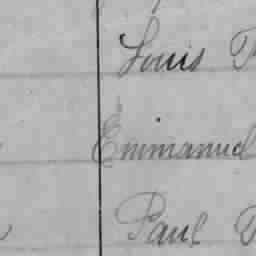 Louis
Emmanuel
Paul